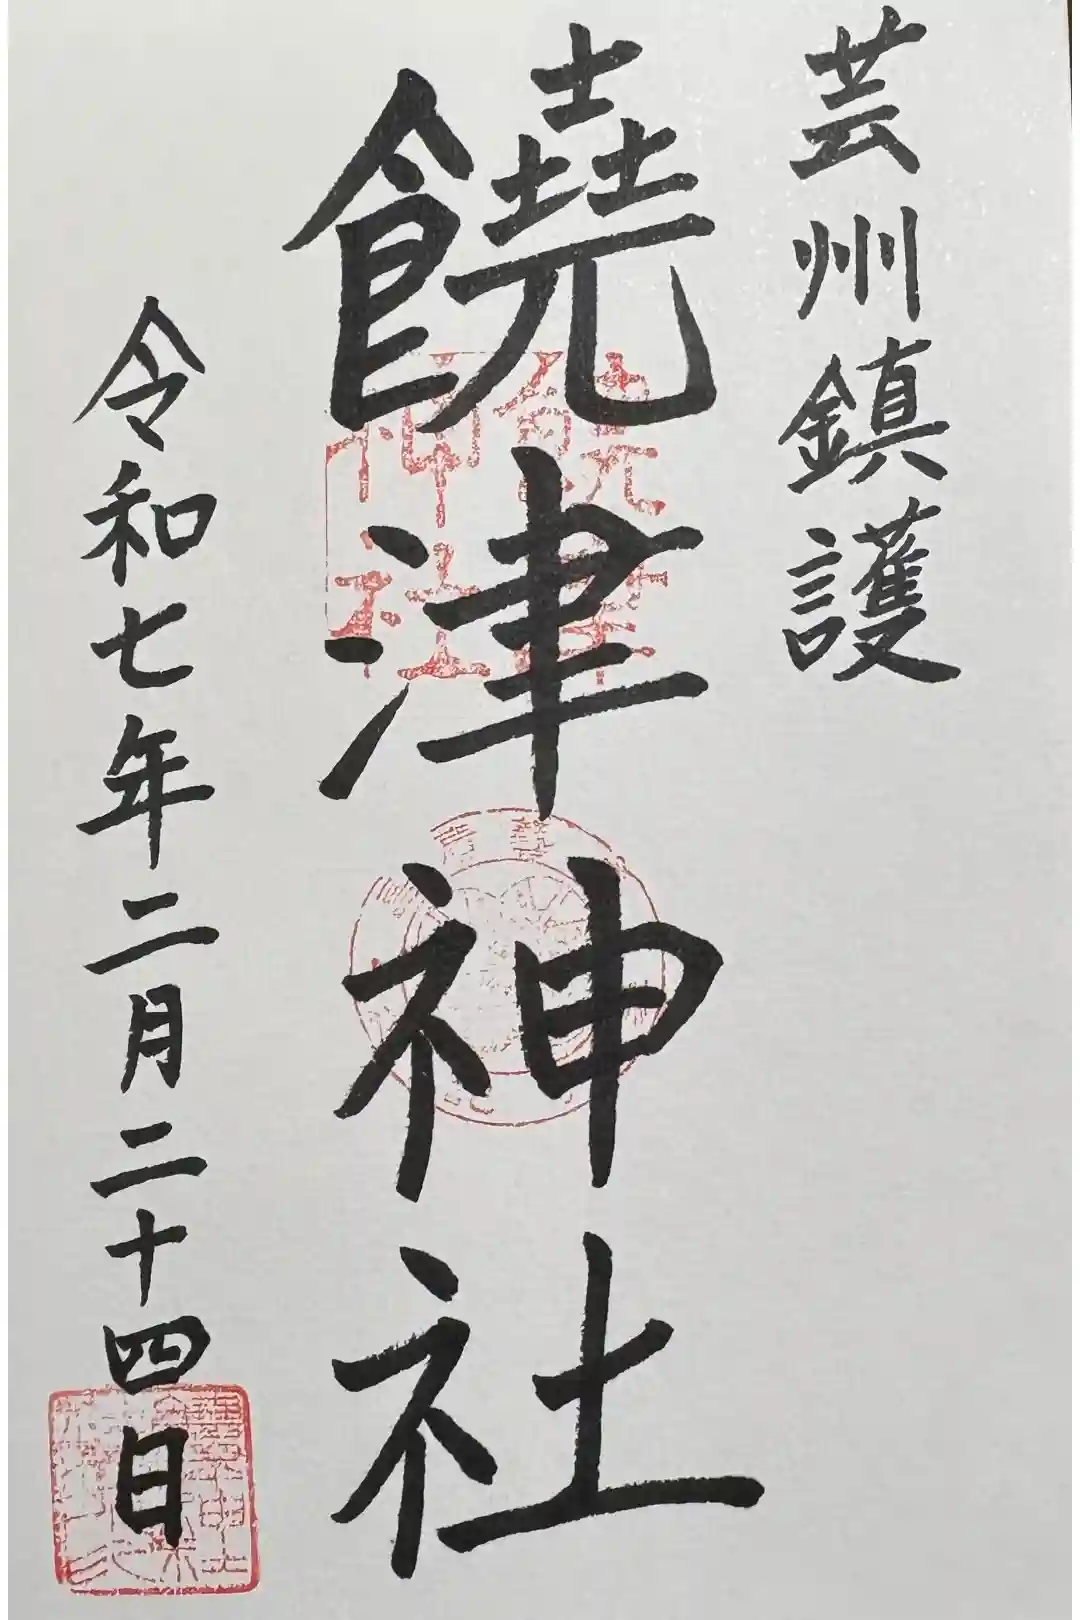 芸州鎮護
饒津神社
令和七年二月二十四日
饒津神社